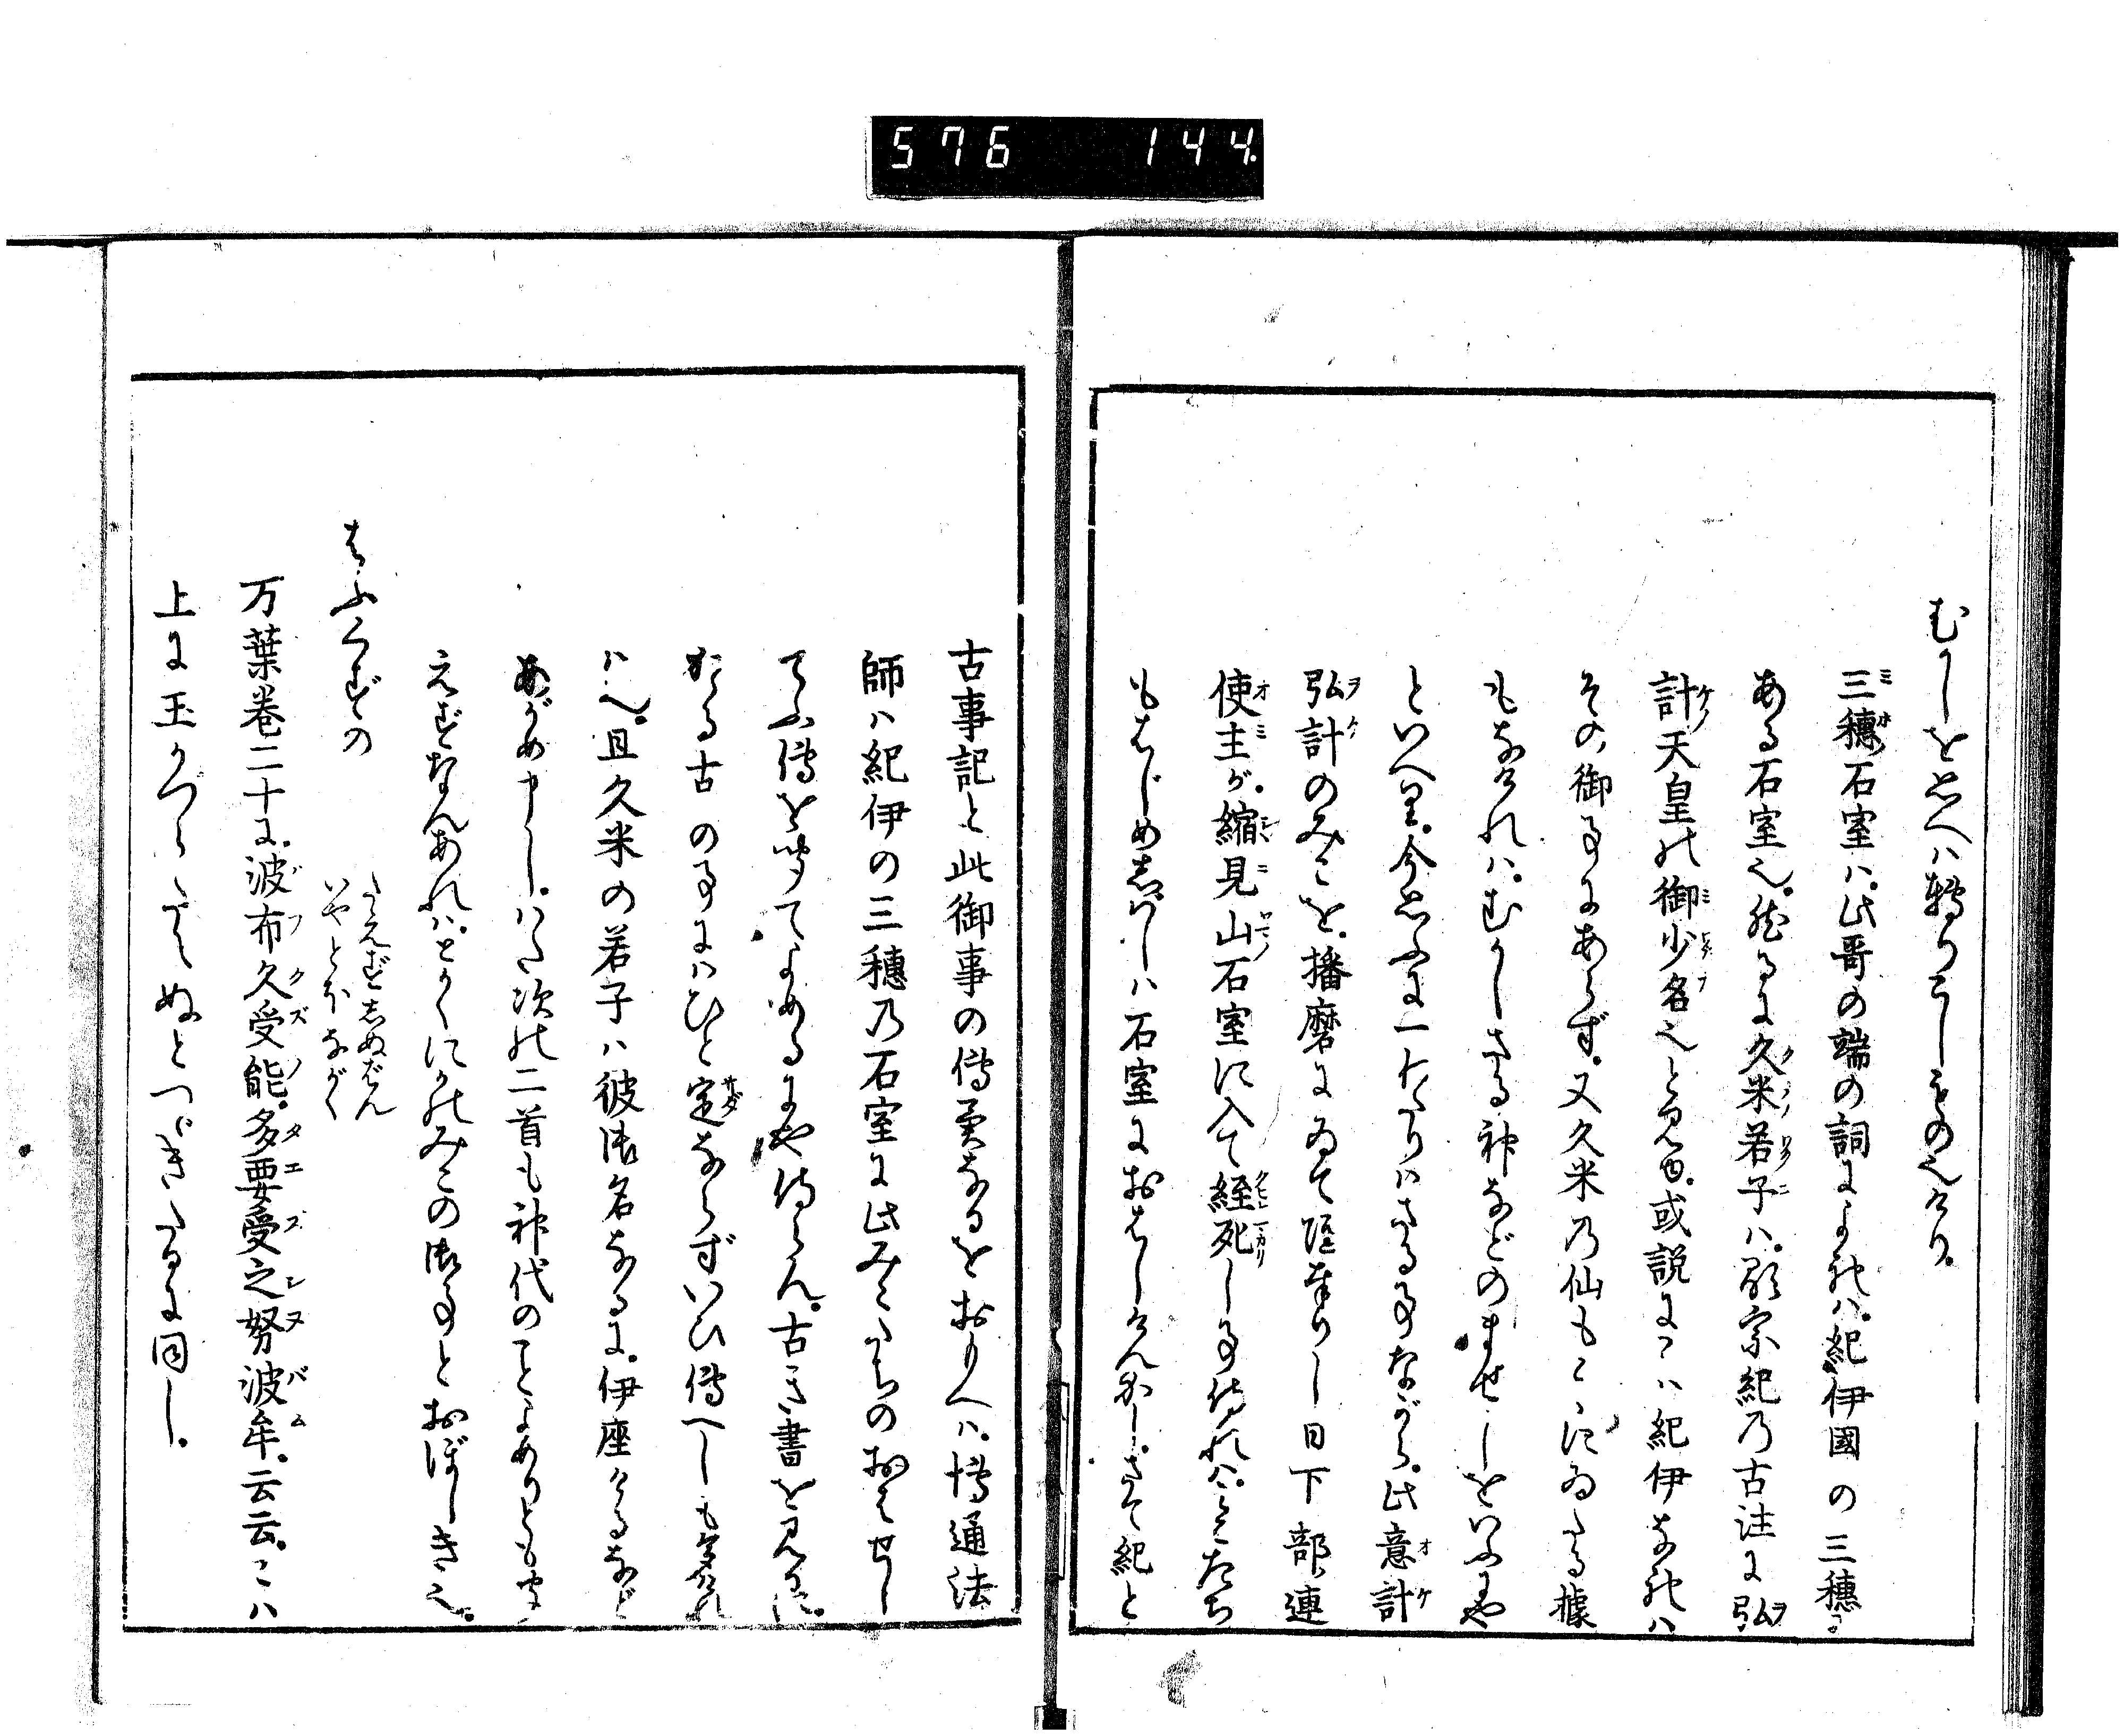 576 144
むかしをおもへは轉りうしものなりけり。
三穗石室ハ。此哥の端の詞によれハ。紀伊國の三穗に
ある石室也。然るに久米若子ハ。顕宗紀乃古注に弘
計天皇の御少名也と見ゆ。或説にこハ紀伊なれハ
その御事にあらず。又久米乃仙もこゝにゐたる據
もなけれハ。むかしさる神などのませしをいふにや
といへり。今思ふに一わたりハさる事ながら。此意計
弘計のみこを。播磨にゐて隠奉りし日下部連
使主が。縮見山石室に入て経死し事侍れハ。みこたち
もはじめ志ばしハ石室におはしけんかし。さて紀と
古事記と此御事の傳異なるをおもへハ。博通法
師ハ紀伊の三穗乃石室に此みこたちのおはせし
てふ傳を聞てよめるにや侍らん。古き書を見るに。
かゝる古の事にハひと定ならずいひ傳へしも多けれ
ハ也。且久米の若子ハ彼御名なるに。伊座けるなど
あがめ申し。はた次の二首も神代のことよめりとも聞
えずなんあれハ。とかくにかのみこの御事とおぼしき也。
はふくずの
たえずしぬばん
いやとほながく
万葉巻二十に。波布久受能。多要受之努波牟。云云。こハ
上に玉かづらたえぬとつゞきたるに同し。